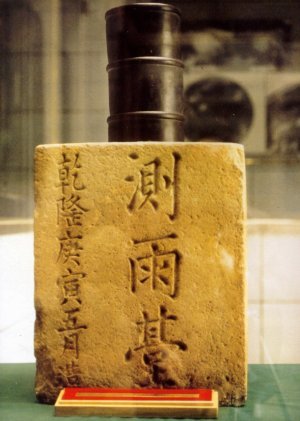 測雨䑓
乾隆庚寅五月造